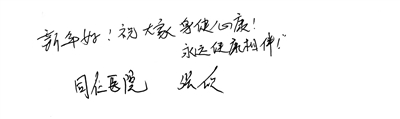 新年好！祝大家身健心康！
永远健康相伴！
同仁医院 张欣